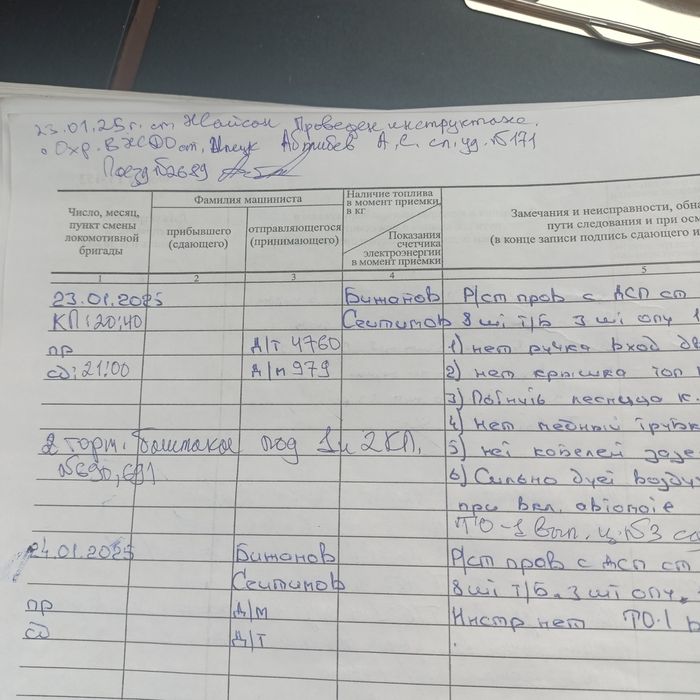 23.01.25г. ст. Жайсан Проведен инструктаж.
Охр. ВЖСДО ст. А. С. сп. уд. №171
Поезд №2689
Число, месяц, пункт смены локомотивной бригады
Фамилия машиниста
прибывшего (сдающего)
отправляющегося (принимающего)
Наличие топлива в момент приемки, в кг
Показания счетчика электроэнергии в момент приемки
Замечания и неисправности, обна
пути следования и при осм
(в конце записи подпись сдающего и
1 2 3 4 5
23.01.2025 Бижанов Р/ст пров с ДСП ст
КП: 20:40 Сеитимов 8 шт Т/Б 3 шт опу 1
пр д/т 4760 1) нет ручка вход дв
сд: 21:00 д/м 979 2) нет крышка топ
3) Погнутб лесница к.
4) Нет медный трубк
2 торм. башмака под 1 и 2 КП. 5) нет кабелей зазе
№690,691 6) Сильно дует возду
при вкл.
ТО-1 вып. ц. №3
24.01.2025 Бижанов Р/ст пров с ДСП ст
Сеитимов 8 шт Т/Б. 3 шт опу.
пр д/м Инстр нет ТО.1
сд д/т